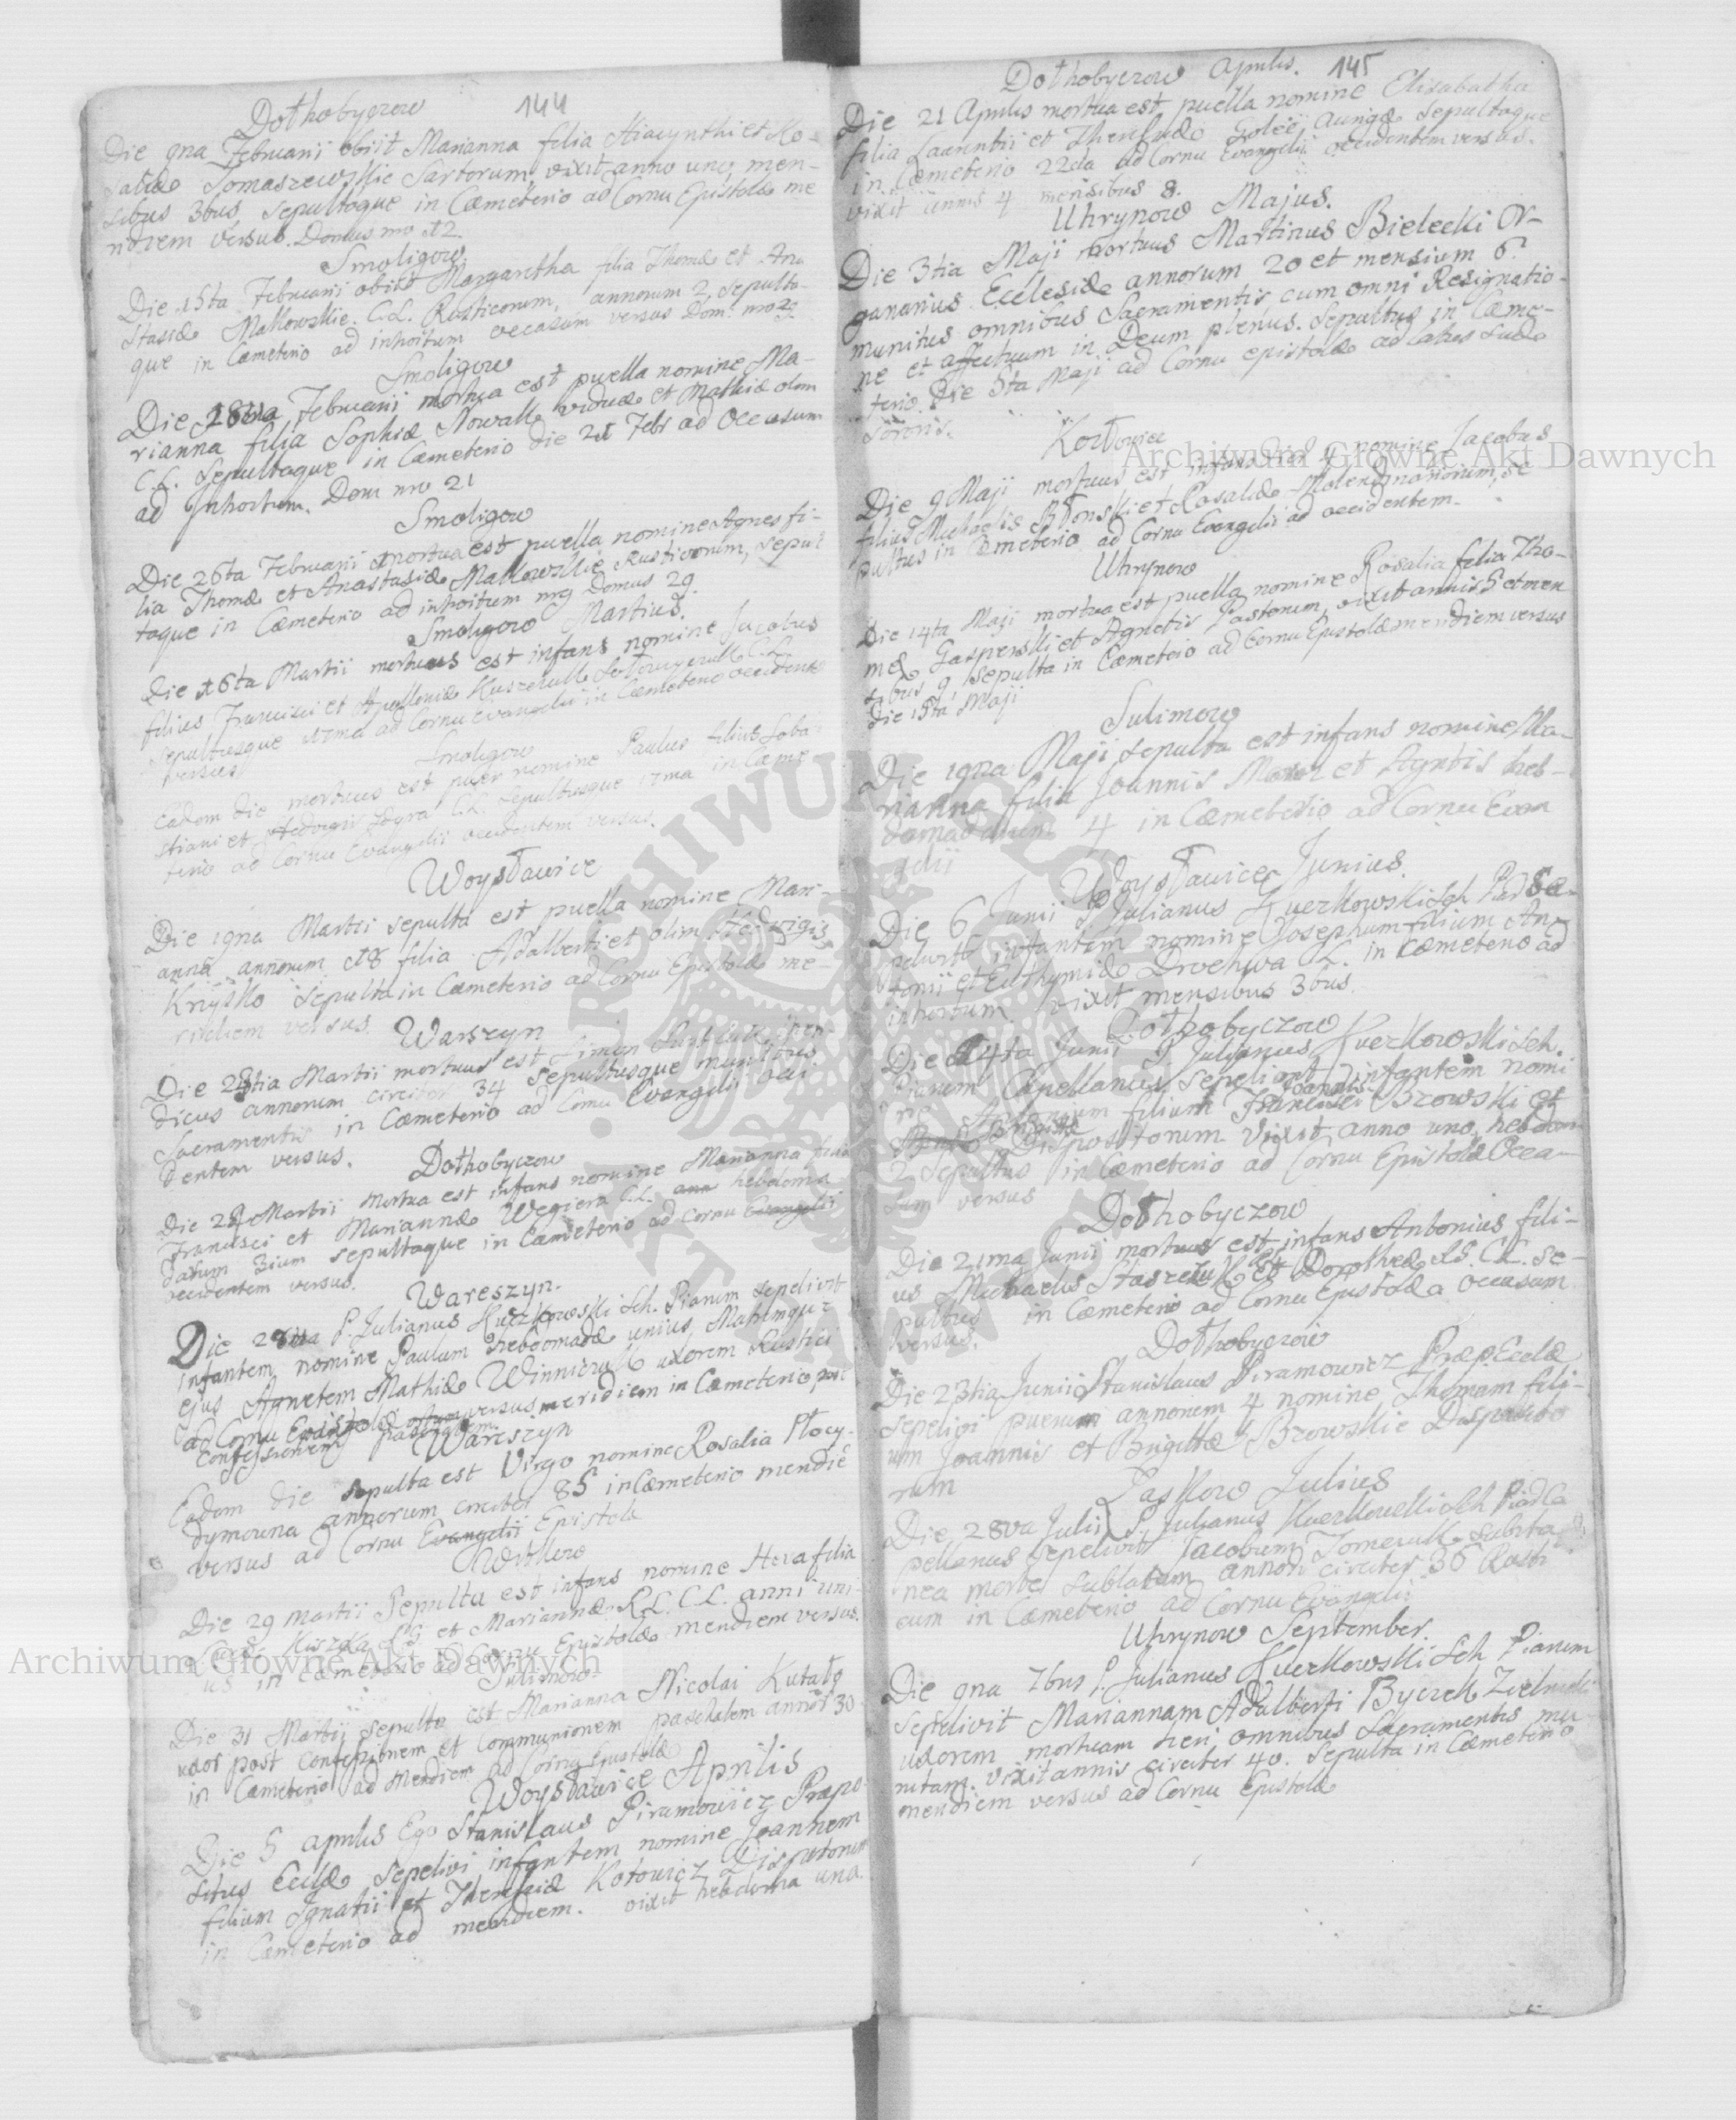 Dołhobyczow 144
Die 9na Februarii obiit Marianna filia Hiacynthi et Ro-
saliæ Tomaszewskie Sartorum, vixit anno uno, men-
sibus 3bus, sepultaque in Cæmeterio ad Cornu Epistolæ me
ridiem versus. Domus nro 12
Smoligow
Die 15ta Februarii obiit Margaretha filia Thomæ et Ana
stasiæ Malkowskie C.L. Rusticorum, annorum 2 sepulta-
que in Cæmeterio ad introitum occasum versus Dom: nro 29
Smoligow
Die 18va Februarii mortua est puella nomine Ma-
rianna filia Sophiæ Nowak viduæ et Mathiæ olim
C.L. Sepultaque in Cæmeterio die 21 Febr ad Occasum
ad Introitum. Dom nro 21
Smoligow
Die 26ta Februarii mortua est puella nomine Agnes fi-
lia Thomæ et Anastasiæ Malkowskie Rusticorum, sepul
taque in Cæmeterio ad introitum nro Domus 29.
Smoligow Martius.
Die 16ta Martii mortuus est infans nomine Jacobus
filius Francisci et Apolloniæ C.L.
sepultusque 17ma ad Cornu Evangelii in Cæmeterio occidentem
versus
Smoligow
Eadem die mortuus est puer nomine Paulus filius Seba-
stiani et Hedvigis C.L. Sepultusque 17ma in Cæme
terio ad Cornu Evangelii occidentem versus.
Woysławice
Die 19na Martii sepulta est puella nomine Mari-
anna annorum 18 filia Adalberti et olim Hedvigis
Knyszko Sepulta in Cæmeterio ad Cornu Epistolæ me-
ridiem versus.
Warszyn
Die 23tia Martii mortuus est Simon men
dicus annorum circiter 34 Sepultusque munitus
Sacramentis in Cæmeterio ad Cornu Evangelii occi
dentem versus.
Dołhobyczow
Die 29 Martii mortua est infans nomine Marianna filia
Francisci et Mariannæ Wegiera C.L. ann hebdoma
darum 3ium sepultaque in Cæmeterio ad cornu Evangelii
occidentem versus.
Wareszyn.
Die 28va P. Julianus Kurzkowski Sch. Piarum sepelivit
infantem nomine Paulum hebdomadæ unius Matremque
ejus Agnetem Mathiæ Winniczuk uxorem Rustici
ad Cornu Epistolæ versus meridiem in Cæmeterio post
Confessionem paschalem.
Wareszyn
Eadem die sepulta est Virgo nomine Rosalia Płocy-
dymowna annorum circiter 85 in Cæmeterio meridie
versus ad Cornu Evangelii Epistolæ
Witkow
Die 29 Martii Sepulta est infans nomine filia
Lucæ et Mariannæ R.L. C.L. anni uni
us in Cæmeterio ad Cornu Epistolæ meridiem versus.
Sulimow
Die 31 Martii sepulta est Marianna Nicolai
uxor post Confessionem et Communionem paschalem annor 30
in Cæmeterio ad Meridiem ad Cornu Epistolæ
Woysławice Aprilis
Die 5 aprilis Ego Stanislaus Piramowicz Præpo-
situs Ecclæ sepelivi infantem nomine Joannem
filium Ignatii et Theresiæ Kotowicz Dispositorum
in Cæmeterio ad meridiem. vixit hebdoma una
Dołhobyczow Aprilis. 145
Die 21 Aprilis mortua est puella nomine Elisabetha
filia Laurentii et Theresiæ Aurigæ sepultaque
in Cæmeterio 22da ad Cornu Evangelii occidentem versus.
vixit annis 4 mensibus 8.
Uhrynow Majus.
Die 3tia Maji mortuus Martinus Bielecki Or-
ganarius Ecclesiæ annorum 20 et mensium 6.
munitus omnibus Sacramentis cum omni Resignatio-
ne et affectuum in Deum plenus. Sepultus in Cæme-
terio Die 5ta Maji ad Cornu epistolæ ad latus suæ
sororis.
Die 9 Maji mortuus est infans nomine Jacobus
filius Michaelis et Rosaliæ Molendinariorum, se
pultus in Cæmeterio ad Cornu Evangelii ad occidentem.
Uhrynow
Die 14ta Maji mortua est puella nomine Rosalia filia Tho-
mæ Gasperski et Agnetis Pastorum, vixit annis 5 et men
sibus 9 sepulta in Cæmeterio ad Cornu Epistolæ meridiem versus
die 15ta Maji
Sulimow
Die 19na Maji sepulta est infans nomine Ma-
rianna filia Joannis et Agnetis heb-
domadarum 4 in Cæmeterio ad Cornu Evan
gelii
Woysławice Junius.
Die 6 Junii P Julianus Kurzkowski Sch Piar Se-
pelivit infantem nomine Josephum filium An-
tonii et Euthymiæ C.L. in Cæmeterio ad
introitum vixit mensibus 3bus.
Dołhobyczow
Die 14ta Junii P. Julianus Kurzkowski Sch.
Piarum Capellanus sepelivit infantem nomi
ne Antonium filium Francisci Joannis Brzowski et
Brigittæ Dispositorum vixit anno uno, hebdom
2 Sepultus in Cæmeterio ad Cornu Epistolæ Occa-
sum versus
Dołhobyczow
Die 21ma Junii mortuus est infans Antonius fili-
us Michaelis et Dorotheæ C.L. se-
pultus in Cæmeterio ad Cornu Epistolæ occasum
versus.
Dołhobyczow
Die 23tia Junii Stanislaus Piramowicz Præp Ecclæ
sepelivi puerum annorum 4 nomine Thomam fili-
um Joannis et Brigittæ Brzowskie Disposito
rum
Zaskow Julius
Die 28va Julii P. Julianus Kurzkowski Sch Piar Ca
pellanus sepelivit Jacobum Tomczuk subita
nea morte sublatum annor circiter 36 Rusti
cum in Cæmeterio ad Cornu Evangelii
Uhrynow September.
Die 9na 7bris P. Julianus Kurzkowski Sch Piarum
sepelivit Mariannam Adalberti Byczek
uxorem mortuam heri omnibus Sacramentis mu-
nitam. vixit annis circiter 40. Sepulta in Cæmeterio
meridiem versus ad Cornu Epistolæ
Archiwum Główne Akt Dawnych
Archiwum Główne Akt Dawnych